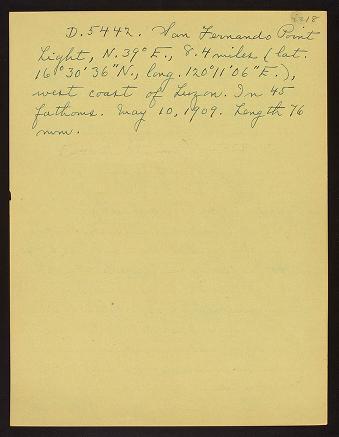 D. 5442. San Fernando Point
Light, N. 39° E., 8.4 miles (lat.
16° 30' 36" N., long. 120° 11' 06" E.),
west coast of Luzon. In 45
fathoms. May 10, 1909. Length 76
mm.